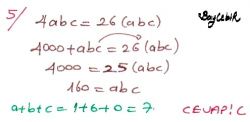 5/ 4abc = 26(abc) BayCebir
4000+abc = 26(abc)
4000 = 25(abc)
160 = abc
a+b+c = 1+6+0 = 7. CEVAP: C